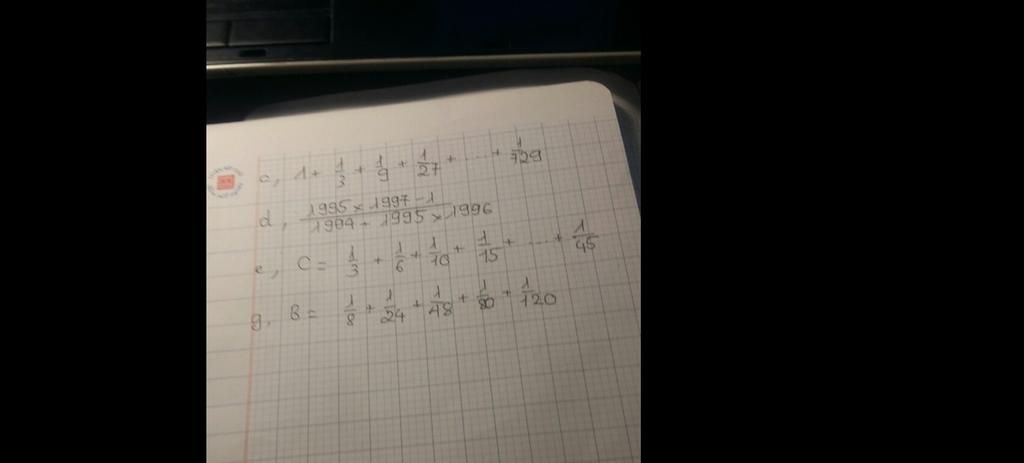 c, 1 + 1/3 + 1/9 + 1/27 + ..... + 1/729
d, (1995 × 1997 - 1)/(1994 + 1995 × 1996)
e, C = 1/3 + 1/6 + 1/10 + 1/15 + ..... + 1/45
g, B = 1/8 + 1/24 + 1/48 + 1/80 + 1/120